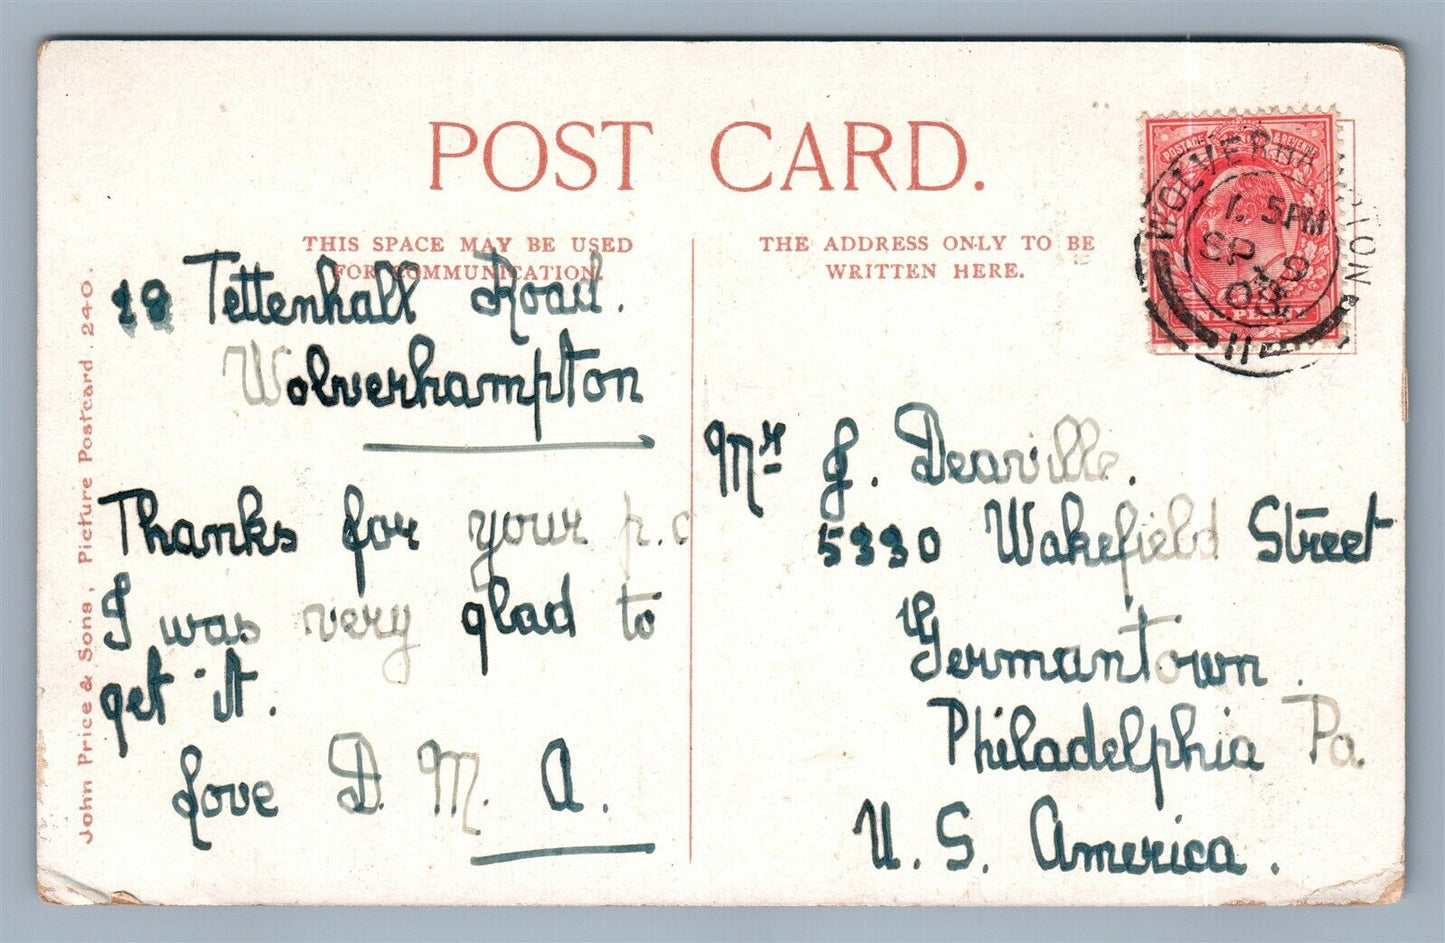 POST CARD.
THIS SPACE MAY BE USED
FOR COMMUNICATION.
THE ADDRESS ONLY TO BE
WRITTEN HERE.
POSTAGE & REVENUE
WOLVERHAMPTON
1. 5PM
SP 9
08
114
John Price & Sons, Picture Postcard. 240.
28 Tettenhall Road.
Wolverhampton
Thanks for your p.c
I was very glad to
get it.
Love D. M. A.
Mr J. Deaville.
5330 Wakefield Street
Germantown.
Philadelphia Pa.
U. S. America.